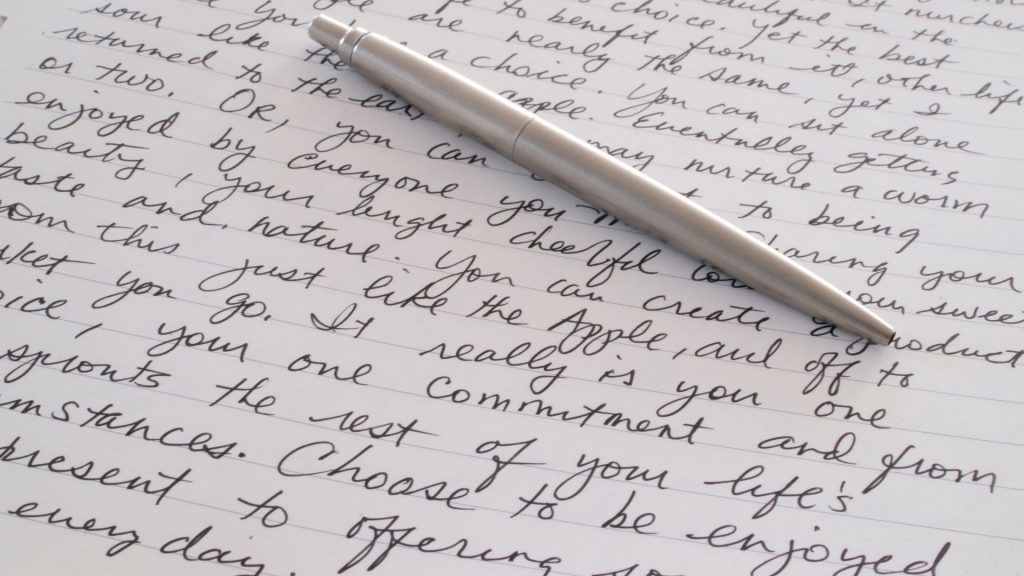 beautiful in the
choice. Yet the best
to benefit from it, other life
are nearly the same, yet I
you a choice. You can sit alone
sour like the apple. Eventually getting
returned to the may nurture a worm
or two. OR, you can to being
enjoyed by everyone you Sharing your
beauty, your bright cheerful your sweet
and nature. You can create a product
this just like the Apple, and off to
you go. It really is you one
your one commitment and from
sprouts the rest of your life's
Choose to be enjoyed
present to offering
every day.